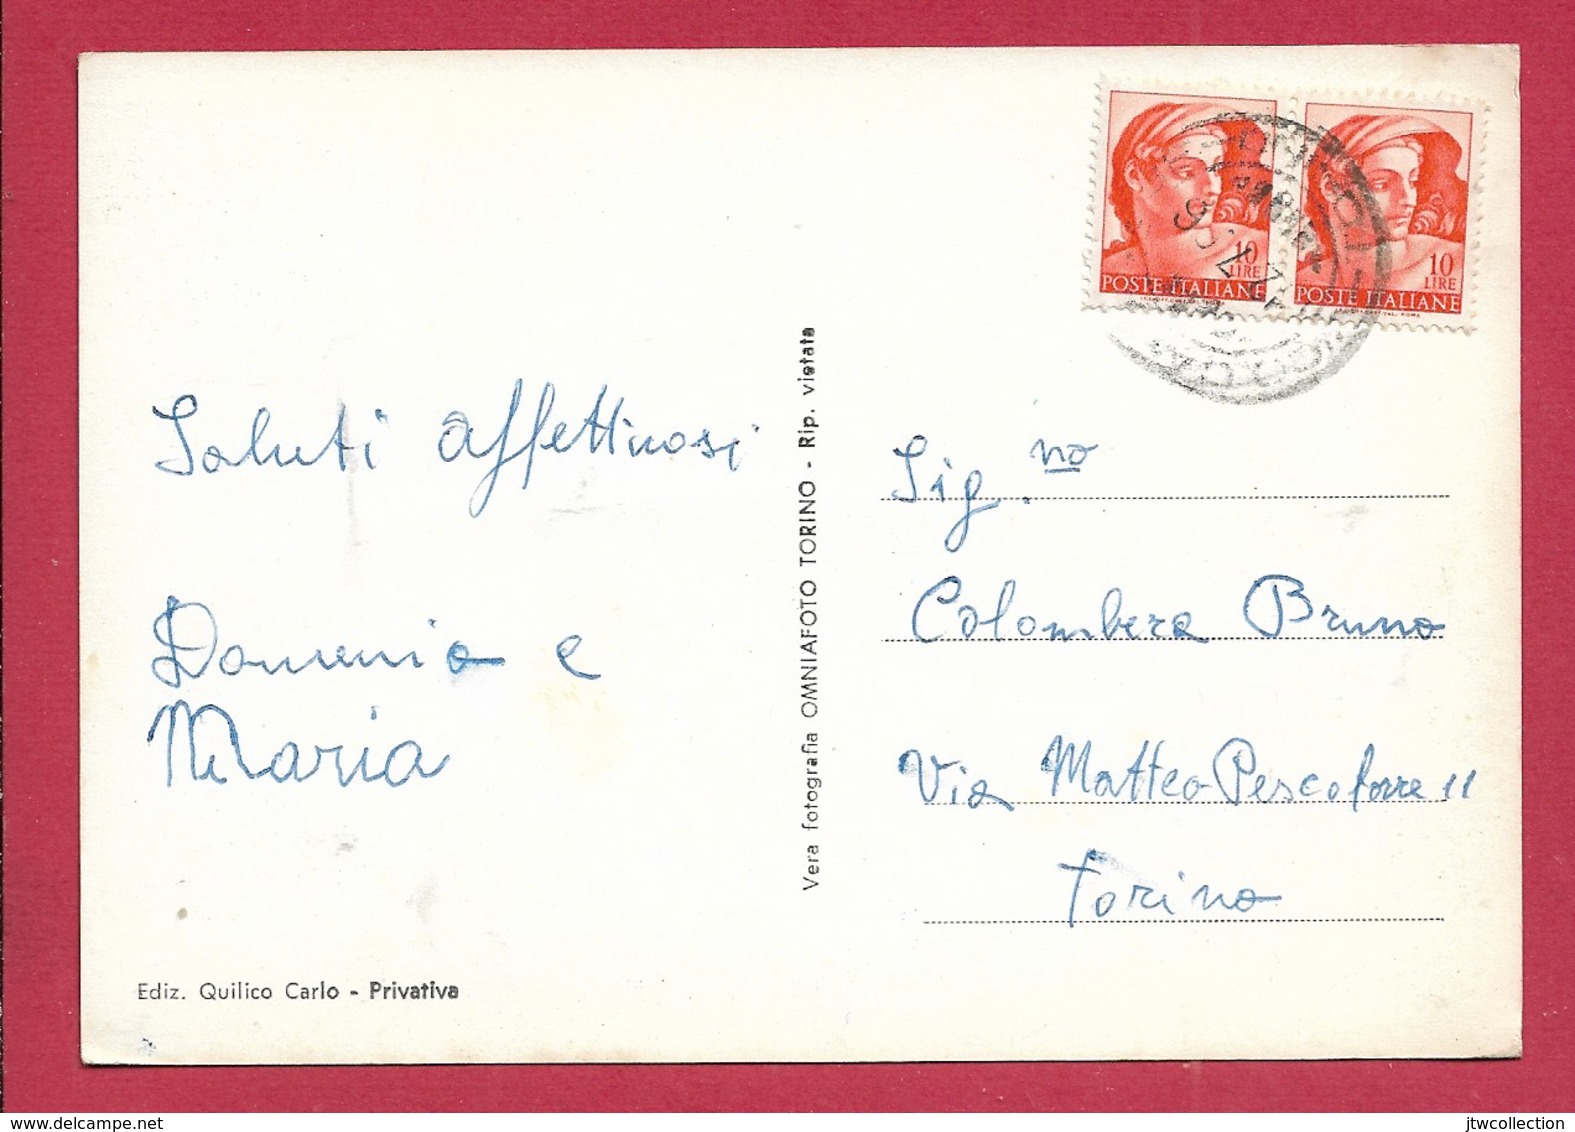 Saluti affettuosi
Domenia e
Maria
Ediz. Quilico Carlo - Privativa
Vera fotografia OMNIAFOTO TORINO - Rip. vietata
10
LIRE
POSTE ITALIANE
10
LIRE
POSTE ITALIANE
Sig.no
Colombera Bruno
Via Matteo Pescatorre 11
Torino
jtwcollection